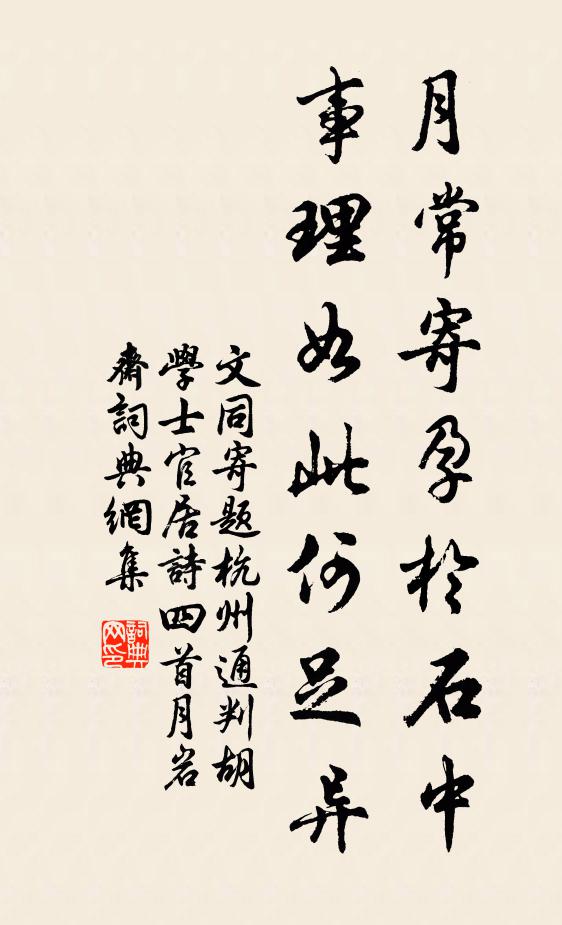 月常寄孕於石中
事理如此何足异
文同寄题杭州通判胡
學士官居詩四首月岩
齋詞典網集
詞典
网印